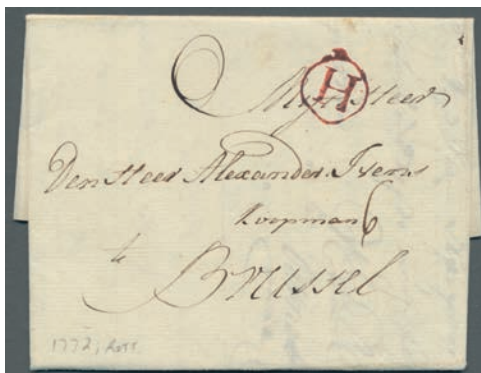 H
Mijn Heer
Den Heer Alexander Ivens
Koopman
te
Brussel
1772, Rott.